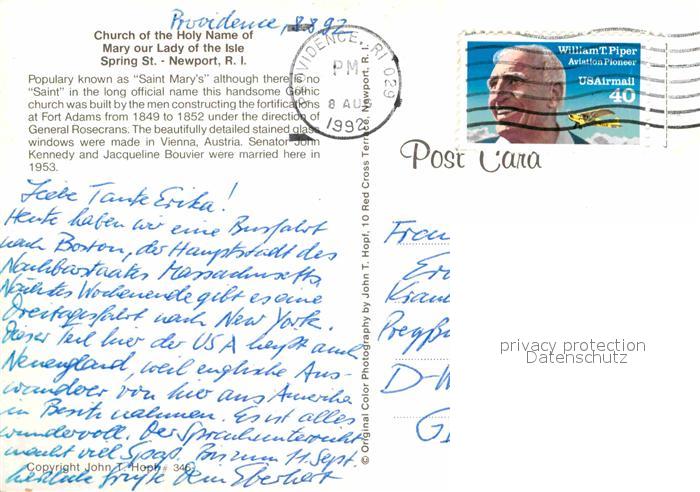 Providence, 8.8.92
Church of the Holy Name of
Mary our Lady of the Isle
Spring St. - Newport, R. I.
Populary known as "Saint Mary's" although there is no
"Saint" in the long official name this handsome Gothic
church was built by the men constructing the fortifications
at Fort Adams from 1849 to 1852 under the direction of
General Rosecrans. The beautifully detailed stained glass
windows were made in Vienna, Austria. Senator John
Kennedy and Jacqueline Bouvier were married here in
1953.
Liebe Tante Erika!
Heute haben wir eine Busfahrt
nach Boston, der Hauptstadt des
Nachbarstaates Massachusetts.
Nächstes Wochenende gibt es eine
Dreitagesfahrt nach New York.
Dieser Teil hier der USA heißt auch
Neuengland, weil englische Aus-
wanderer von hier aus Amerika
in Besitz nahmen. Es ist alles
wundervoll. Der Sprachunterricht
macht viel Spaß. Bis zum 11. Sept.
herzliche Grüße Dein Eberhard
Copyright John T. Hopf # 346
© Original Color Photography by John T. Hopf, 10 Red Cross Terrace, Newport, R.
PROVIDENCE, RI 029
PM
8 AUG
1992
William T. Piper
Aviation Pioneer
USAirmail
40
Post Card
Frau
Eri
Kram
Preyßu
D-W
privacy protection
Datenschutz